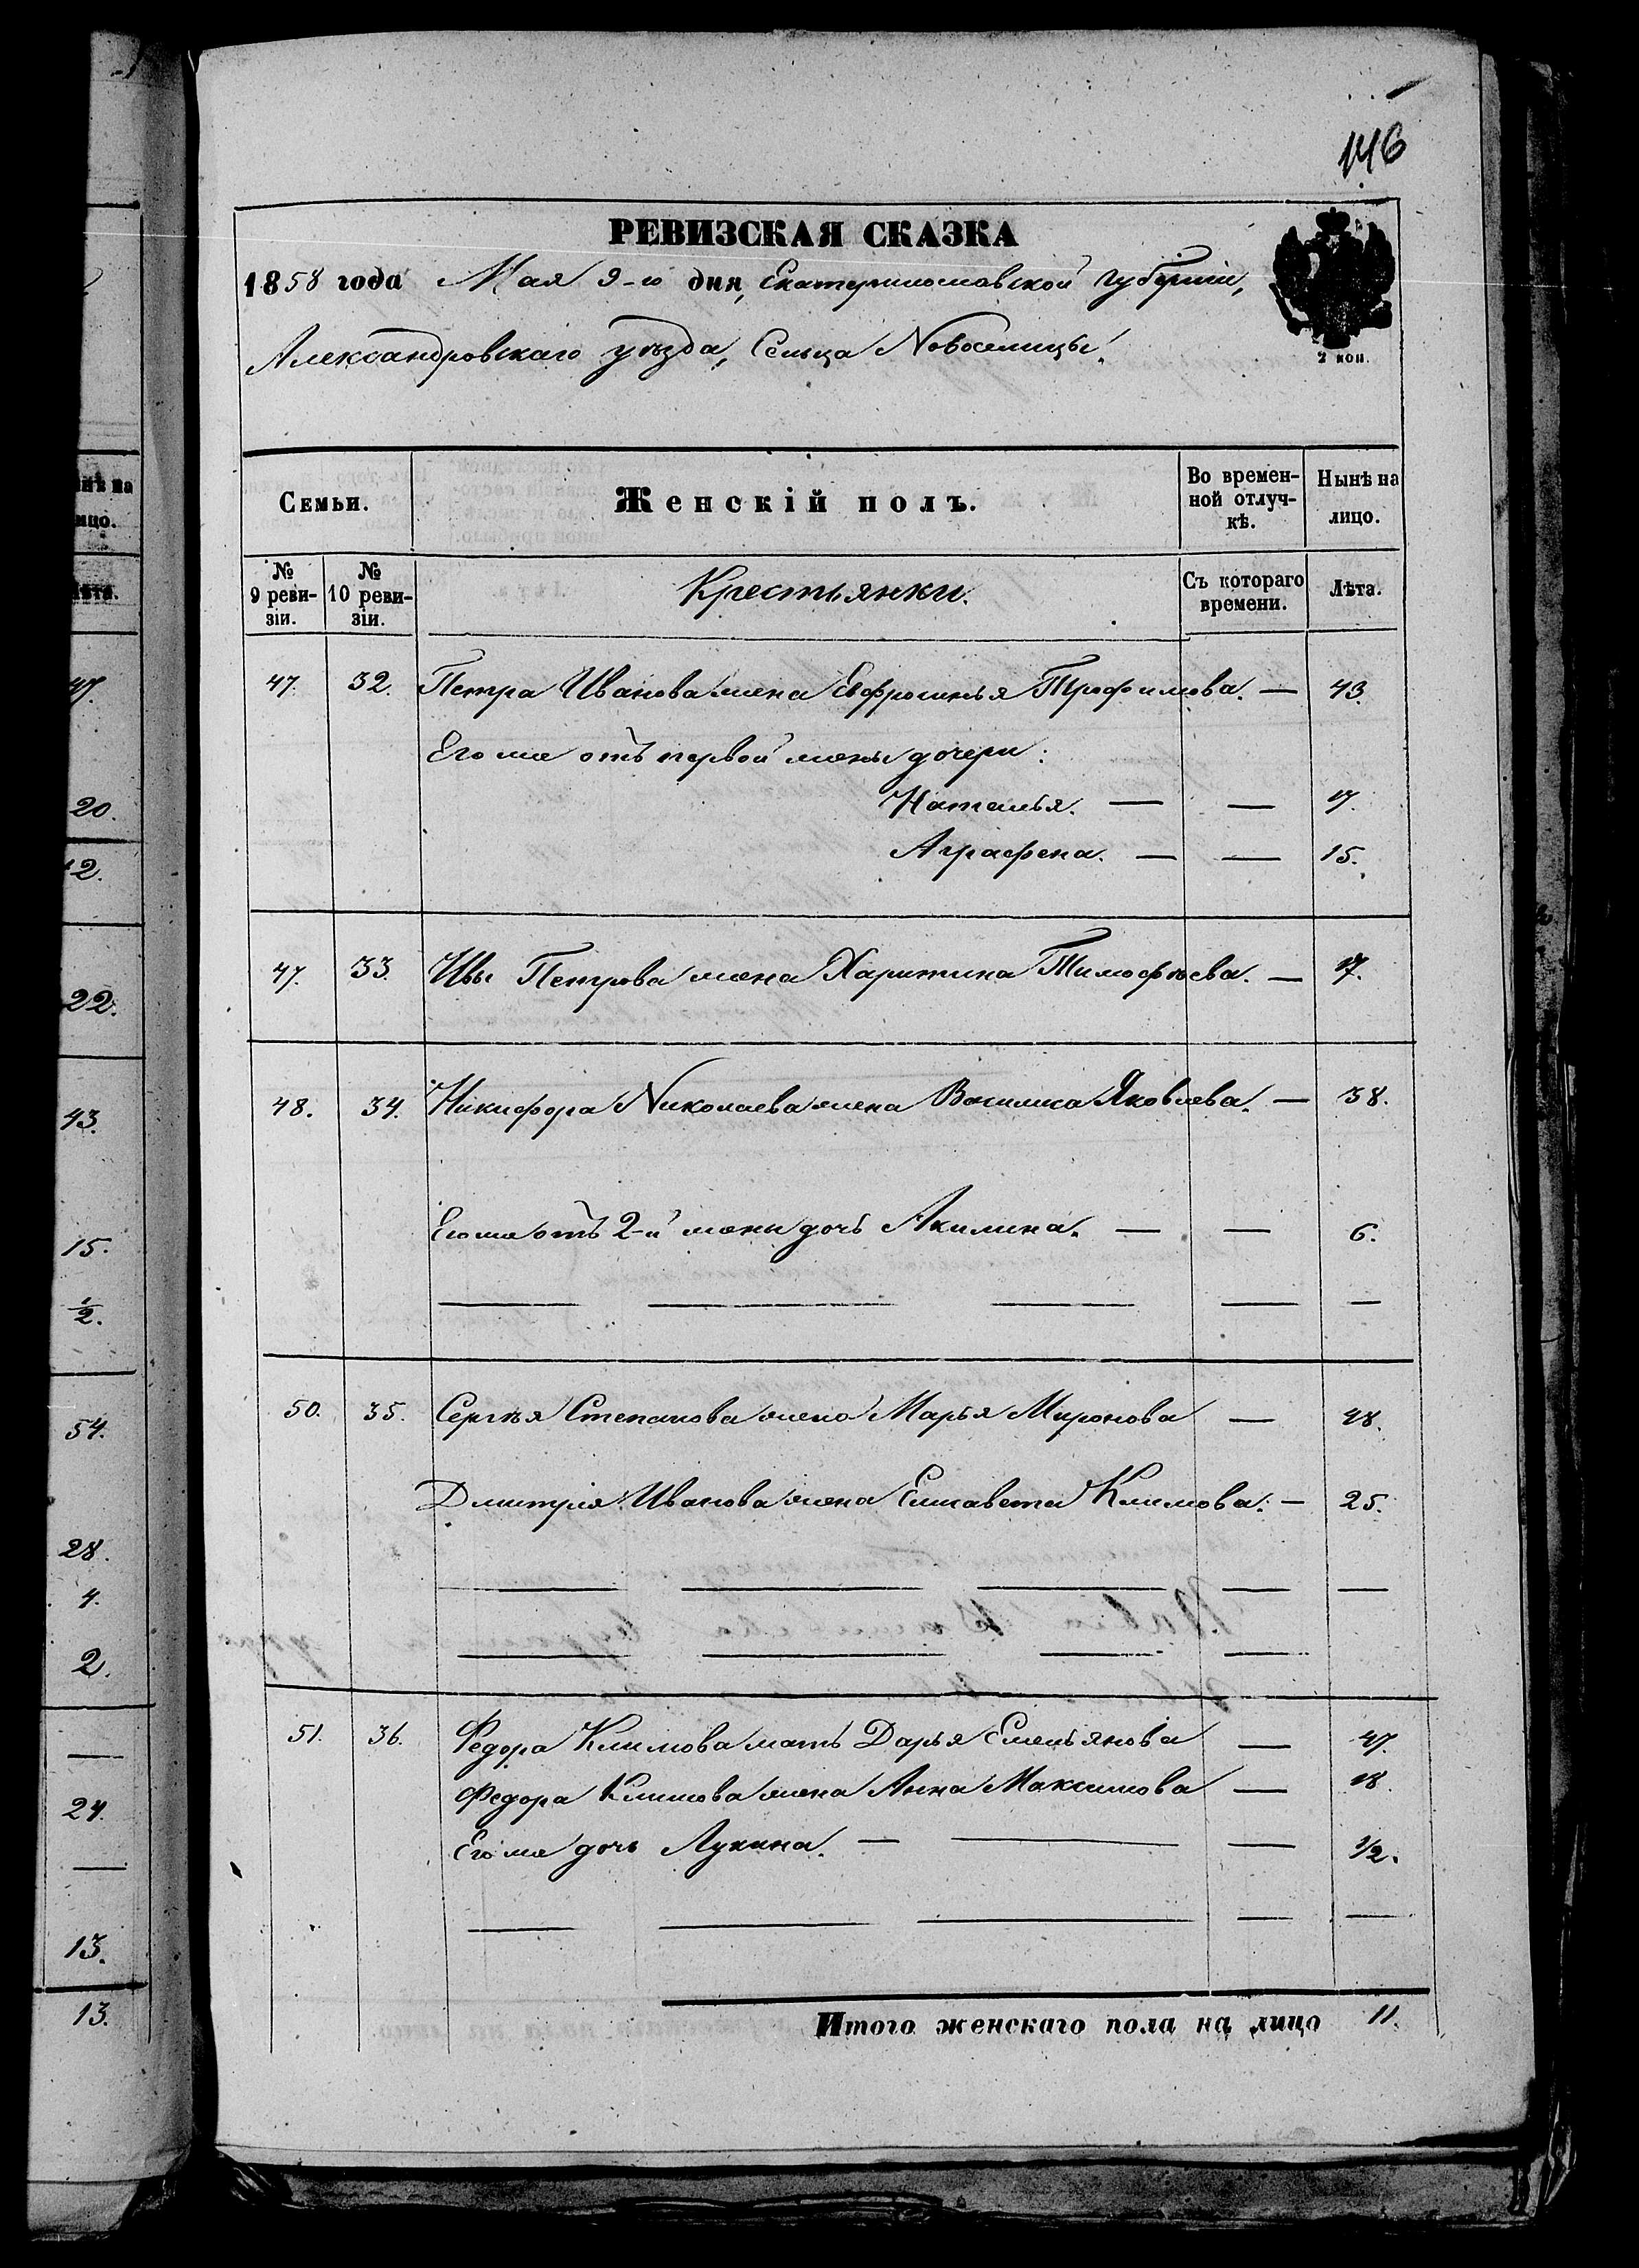 146
РЕВИЗСКАЯ СКАЗКА
1858 года Мая 9-го дня, Екатеринославской губерніи,
Александровскаго уѣзда, Сельца Новоселицы.
2 коп.
Семьи. Женскій полъ. Во времен-ной отлуч-кѣ. Нынѣ на лицо.
№ 9 реви-зіи. № 10 реви-зіи. Крестьянки. Съ котораго времени. Лѣта.
47. 32. Петра Иванова жена Евфросинья Трофимова. — 43.
Его же отъ первой жены дочери:
Наталья. — — 17.
Аграфена. — — 15.
47. 33. Ивы Петрова жена Харитина Тимофѣева. — 17.
48. 34. Никифора Николаева жена Василиса Яковлева. — 38.
Его же отъ 2-й жены дочь Акилина. — — 6.
50. 35. Сергѣя Степанова жена Марья Миронова — 48.
Дмитрія Иванова жена Елисавета Климова. — 25.
51. 36. Федора Климова мать Дарья Емельянова — 47.
Федора Климова жена Анна Максимова — 18.
Его же дочь Лукина. — — — 1/2.
Итого женскаго пола на лицо 11.
47.
20.
12.
22.
43.
15.
1/2.
54.
28.
4.
2.
24.
13.
13.